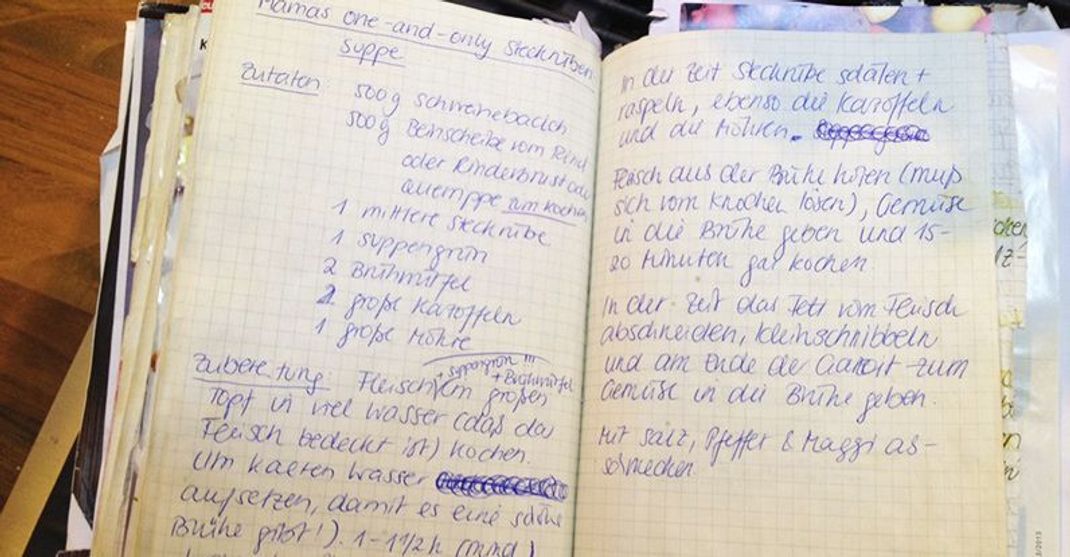 Mamas one-and-only Steckrüben
suppe
Zutaten: 500g Schweinebauch
500g Beinscheibe vom Rind
oder Rinderbrust oder
Querrippe zum Kochen
1 mittlere Steckrübe
1 Suppengrün
2 Brühwürfel
2 große Kartoffeln
1 große Möhre
Zubereitung: Fleisch im großen
+ Suppengrün !!!
+ Brühwürfel
Topf in viel Wasser (daß das
Fleisch bedeckt ist) kochen.
Im kalten Wasser
aufsetzen, damit es eine schöne
Brühe gibt!). 1-1 1/2 h (mind)
In der Zeit Steckrübe schälen +
raspeln, ebenso die Kartoffeln
und die Möhren.
Fleisch aus der Brühe holen (muß
sich vom Knochen lösen), Gemüse
in die Brühe geben und 15-
20 Minuten gar kochen.
In der Zeit das Fett vom Fleisch
abschneiden, kleinschnibbeln
und am Ende der Garzeit zum
Gemüse in die Brühe geben.
Mit Salz, Pfeffer & Maggi ab-
schmecken